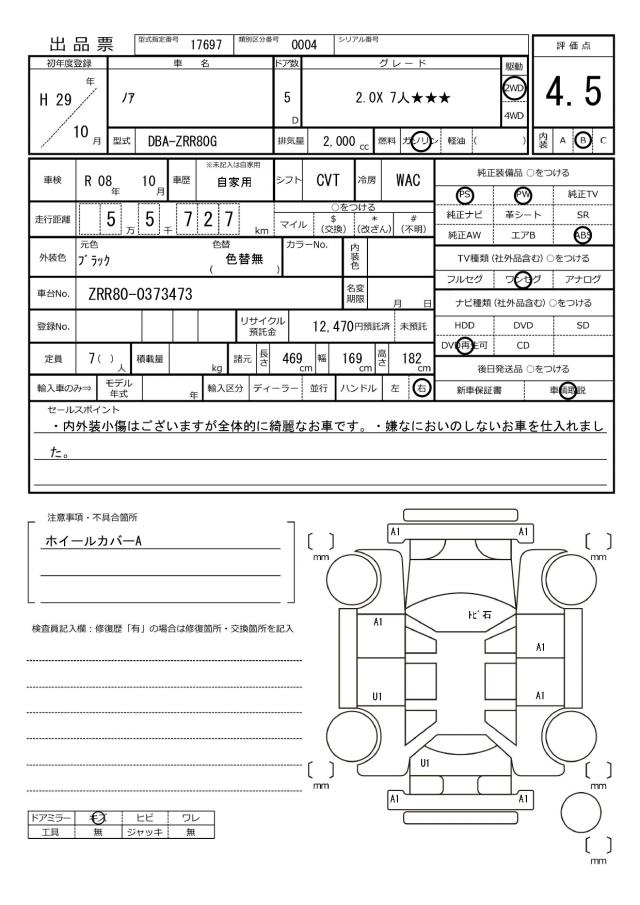 出品票 型式指定番号 17697 類別区分番号 0004 シリアル番号
初年度登録 車名 ドア数 グレード 駆動 評価点
H 29 年 ノア 5 D 2.0X 7人★★★ 2WD 4.5
10 月 4WD
型式 DBA-ZRR80G 排気量 2,000 cc 燃料 ガソリン 軽油 ( ) 内装 A B C
車検 R 08 年 10 月 車歴 ※未記入は自家用 自家用 シフト CVT 冷房 WAC
走行距離 5 万 5 千 7 2 7 km ○をつける
マイル $ (交換) * (改ざん) # (不明)
外装色 元色 ブラック 色替 ( 色替無 ) カラーNo. 内装色
車台No. ZRR80-0373473 名変期限 月 日
登録No. リサイクル預託金 12,470円預託済 未預託
定員 7( ) 人 積載量 kg 諸元 長さ 469 cm 幅 169 cm 高さ 182 cm
輸入車のみ⇒ モデル年式 年 輸入区分 ディーラー 並行 ハンドル 左 右
純正装備品 ○をつける
PS PW 純正TV
純正ナビ 革シート SR
純正AW エアB ABS
TV種類 (社外品含む) ○をつける
フルセグ ワンセグ アナログ
ナビ種類 (社外品含む) ○をつける
HDD DVD SD
DVD再生可 CD
後日発送品 ○をつける
新車保証書 車輌取説
セールスポイント
・内外装小傷はございますが全体的に綺麗なお車です。・嫌なにおいのしないお車を仕入れまし
た。
注意事項・不具合箇所
ホイールカバーA
検査員記入欄：修復歴「有」の場合は修復箇所・交換箇所を記入
ドアミラー キズ ヒビ ワレ
工具 無 ジャッキ 無
A1 A1
[ ] mm [ ] mm
トビ石
A1
A1
U1 A1
U1
[ ] mm [ ] mm
A1 A1
[ ] mm